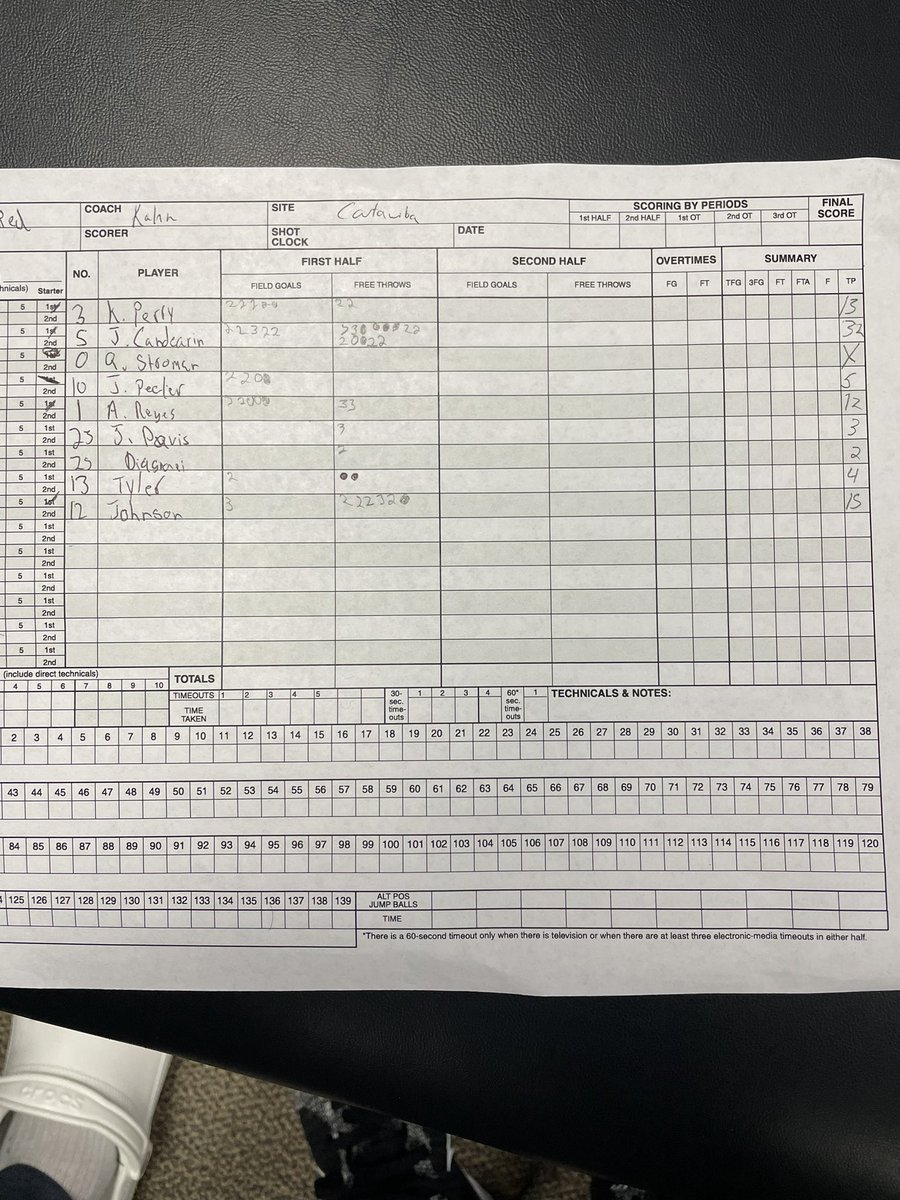 Red COACH Kahn SITE Catawba SCORING BY PERIODS FINAL SCORE
1st HALF 2nd HALF 1st OT 2nd OT 3rd OT
SCORER SHOT CLOCK DATE
NO. PLAYER FIRST HALF SECOND HALF OVERTIMES SUMMARY
hnicals) Starter FIELD GOALS FREE THROWS FIELD GOALS FREE THROWS FG FT TFG 3FG FT FTA F TP
5 1st 2nd 3 K. Perry 22 13
5 1st 2nd 5 J. 22322 32
5 1st 2nd 0 Q. X
5 1st 2nd 10 J. 5
5 1st 2nd 1 A. Reyes 33 12
5 1st 2nd 23 J. Davis 3 3
5 1st 2nd 25 2 2
5 1st 2nd 13 Tyler 2 4
5 1st 2nd 12 Johnson 3 15
5 1st
2nd
5 1st
2nd
5 1st
2nd
5 1st
2nd
5 1st
2nd
5 1st
2nd
(include direct technicals) TOTALS
4 5 6 7 8 9 10 TIMEOUTS 1 2 3 4 5 30-sec. time-outs 1 2 3 4 60* sec. time-outs 1 TECHNICALS & NOTES:
TIME TAKEN
2 3 4 5 6 7 8 9 10 11 12 13 14 15 16 17 18 19 20 21 22 23 24 25 26 27 28 29 30 31 32 33 34 35 36 37 38
43 44 45 46 47 48 49 50 51 52 53 54 55 56 57 58 59 60 61 62 63 64 65 66 67 68 69 70 71 72 73 74 75 76 77 78 79
84 85 86 87 88 89 90 91 92 93 94 95 96 97 98 99 100 101 102 103 104 105 106 107 108 109 110 111 112 113 114 115 116 117 118 119 120
125 126 127 128 129 130 131 132 133 134 135 136 137 138 139 ALT POS JUMP BALLS
TIME
*There is a 60-second timeout only when there is television or when there are at least three electronic-media timeouts in either half.
crocs